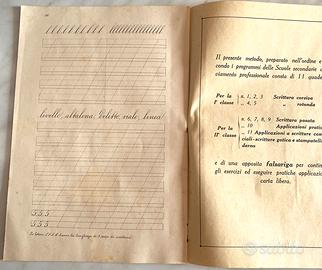 livello, altalena, Golitto, viale, linea
5 5 5
5 5 5
Il presente metodo, preparato nell'ordine e
condo i programmi delle Scuole secondarie
viamento professionale consta di 11 quade
Per la Iª classe
n. 1, 2, 3 Scrittura corsiva
„ 4, 5 „ rotonda
Per la IIª classe
n. 6, 7, 8, 9 Scrittura posata
„ 10 Applicazioni pratic
„ 11 Applicazioni a scritture con
ciali-scritture gotica e stampatell
derno
e di una apposita falsariga per contin
gli esercizi ed eseguire pratiche applicazion
carta libera.
subito